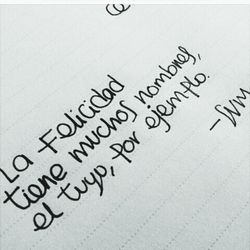 La Felicidad
tiene muchos nombres,
el tuyo, por ejemplo.